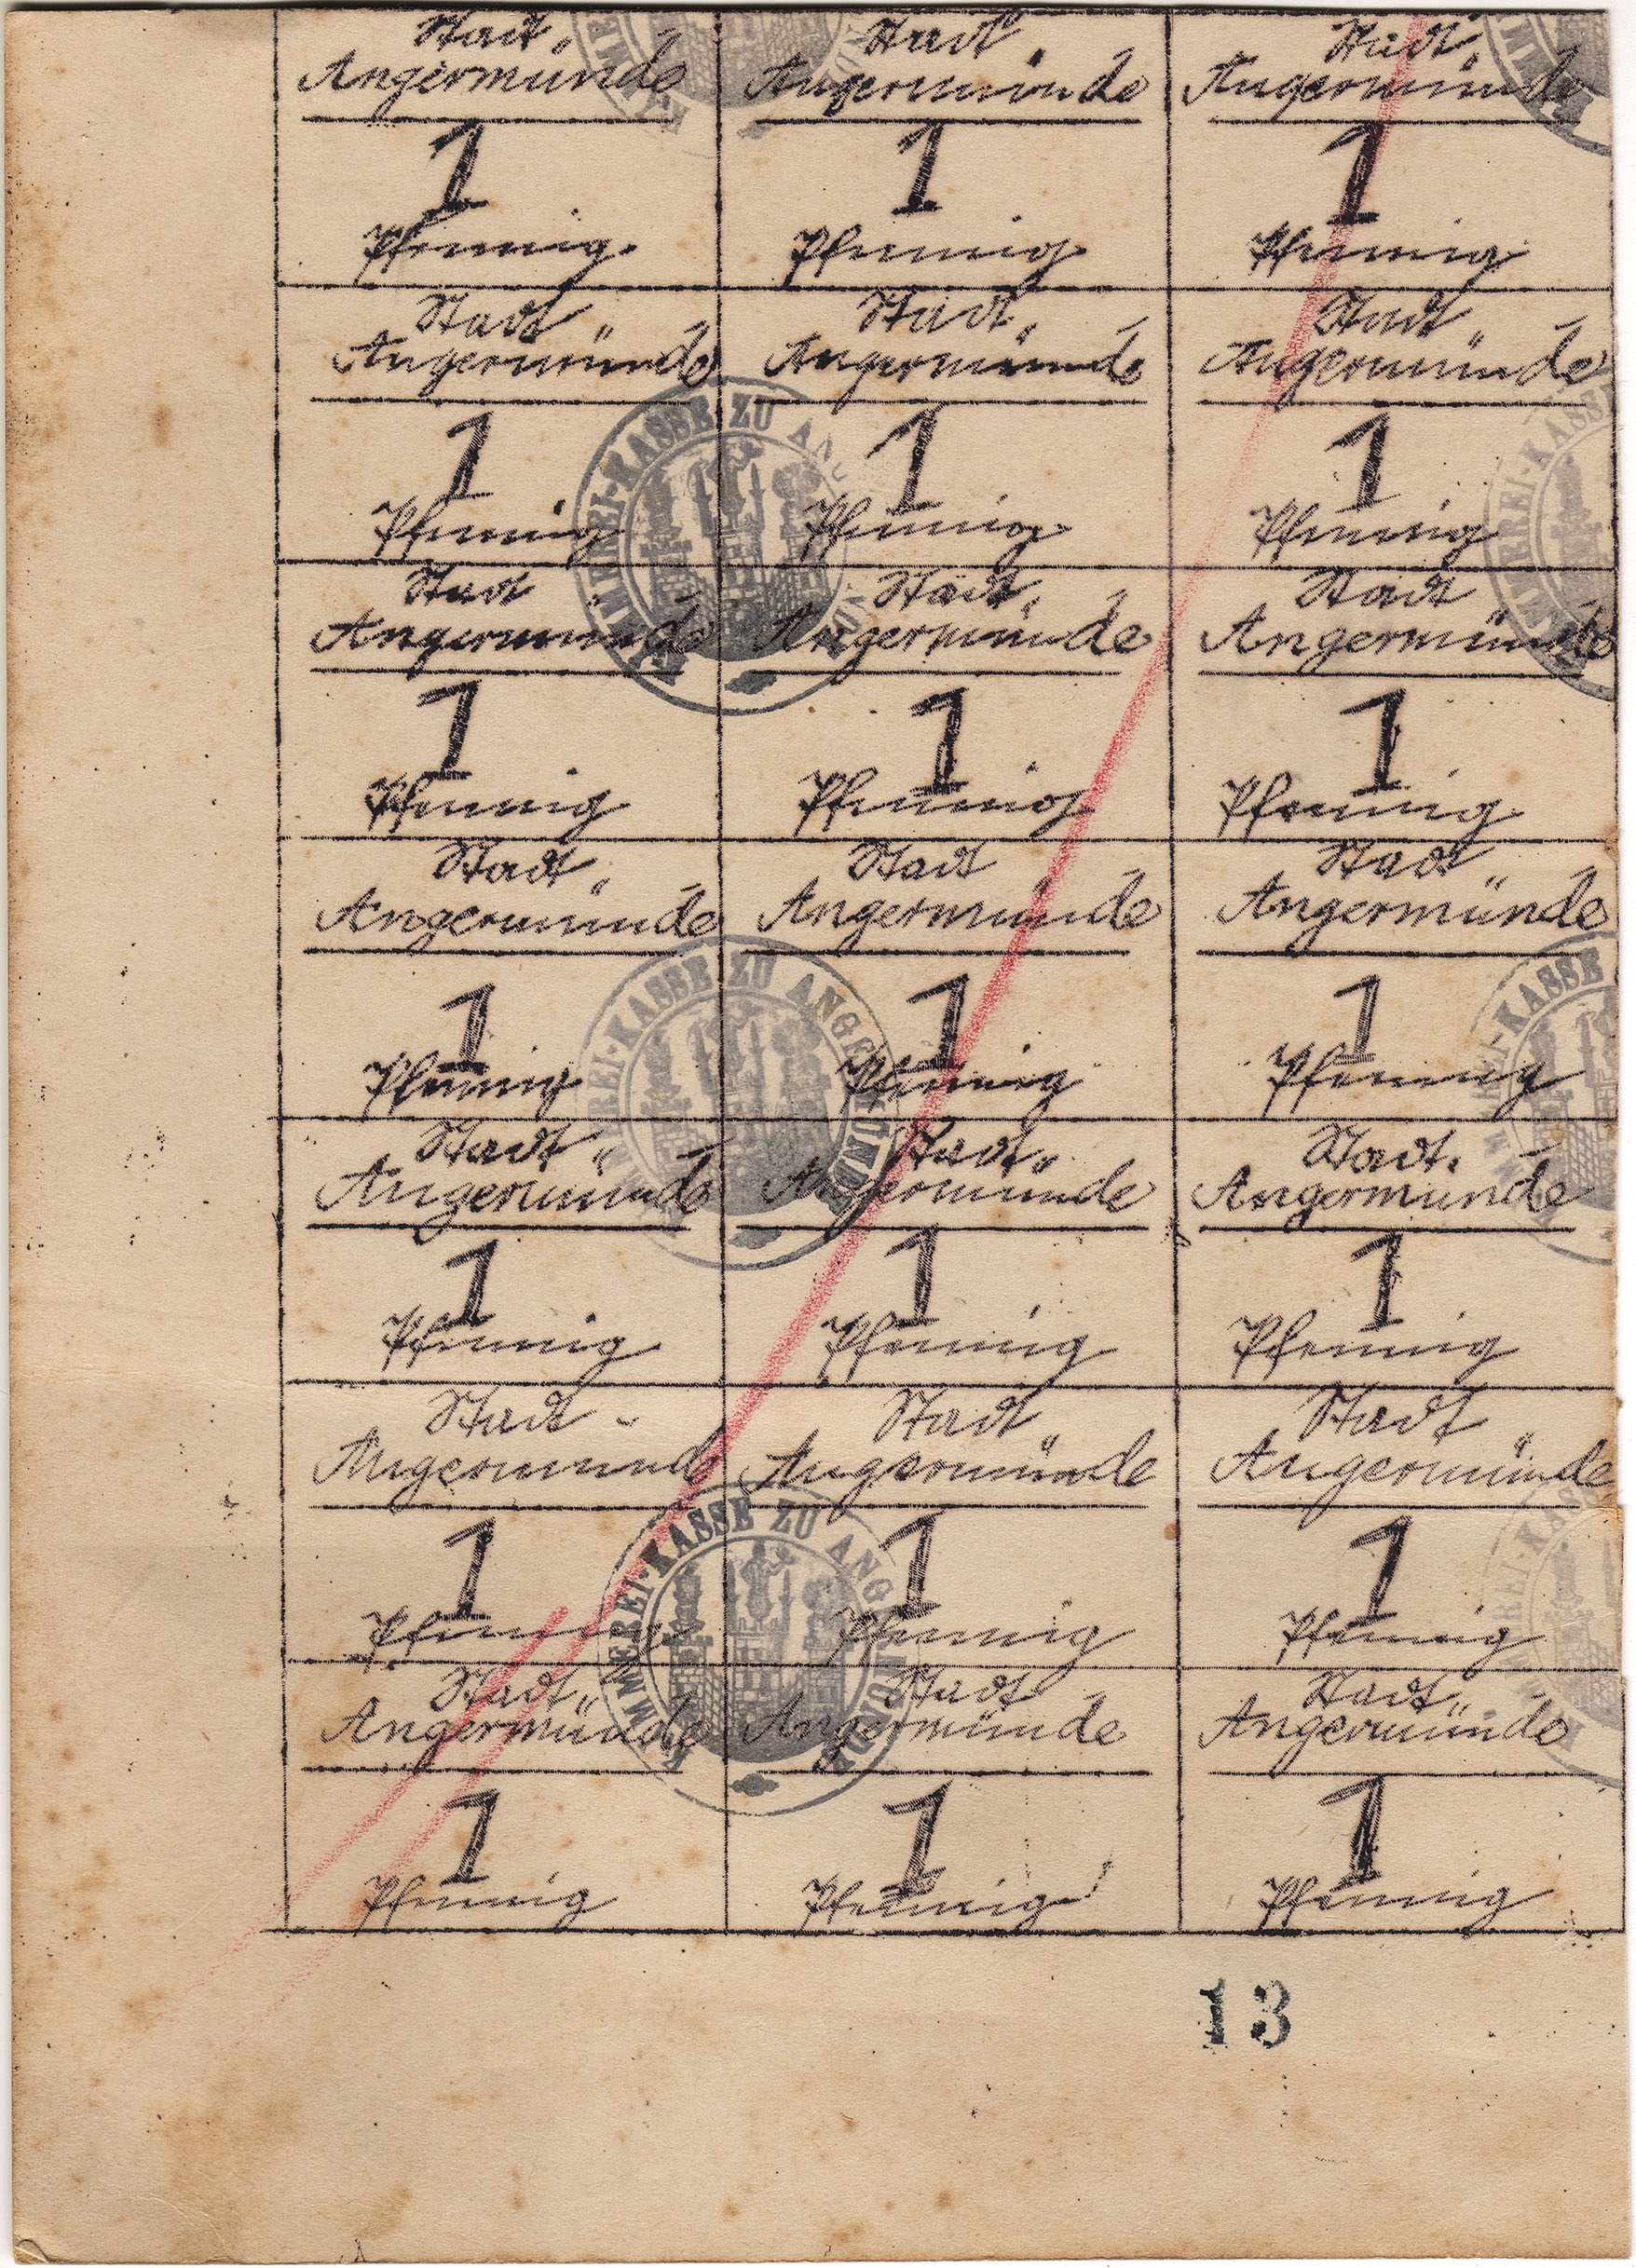 Stadt
Angermünde
1
Pfennig
Stadt
Angermünde
1
Pfennig
Stadt
Angermünde
1
Pfennig
Stadt
Angermünde
1
Pfennig
Stadt
Angermünde
1
Pfennig
Stadt
Angermünde
1
Pfennig
KÄMMEREI-KASSE ZU ANGERMÜNDE
Stadt
Angermünde
1
Pfennig
Stadt
Angermünde
1
Pfennig
Stadt
Angermünde
1
Pfennig
Stadt
Angermünde
1
Pfennig
Stadt
Angermünde
1
Pfennig
Stadt
Angermünde
1
Pfennig
KÄMMEREI-KASSE ZU ANGERMÜNDE
Stadt
Angermünde
1
Pfennig
Stadt
Angermünde
1
Pfennig
Stadt
Angermünde
1
Pfennig
Stadt
Angermünde
1
Pfennig
Stadt
Angermünde
1
Pfennig
Stadt
Angermünde
1
Pfennig
KÄMMEREI-KASSE ZU ANGERMÜNDE
Stadt
Angermünde
1
Pfennig
Stadt
Angermünde
1
Pfennig
Stadt
Angermünde
1
Pfennig
13